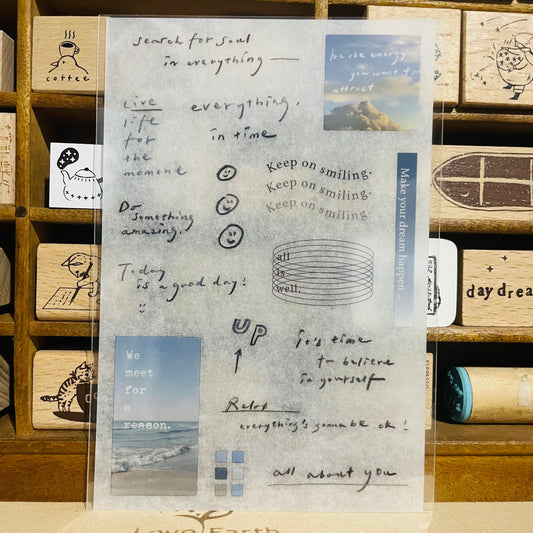 search for soul
in everything —
be the energy
you want to
attract.
coffee
live
life
for
the
moment
everything.
in time
Keep on smiling.
Keep on smiling.
Keep on smiling.
Make your dream happen...
Do
something
amazing.
Today
is a good day!
all
is
well.
day drea
UP
it's time
to believe
in yourself
We
meet
for
a
reason.
Relax
everything's gonna be ok!
all about you
Love Earth